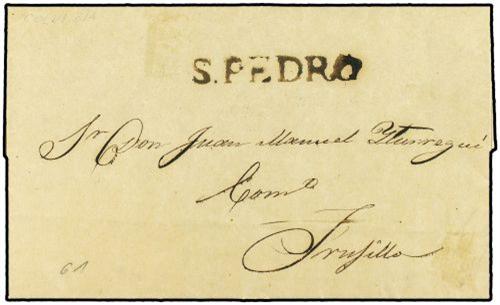 S. PEDRO
Sr Don Juan Manuel Yturregui
Comte
Trujillo
61